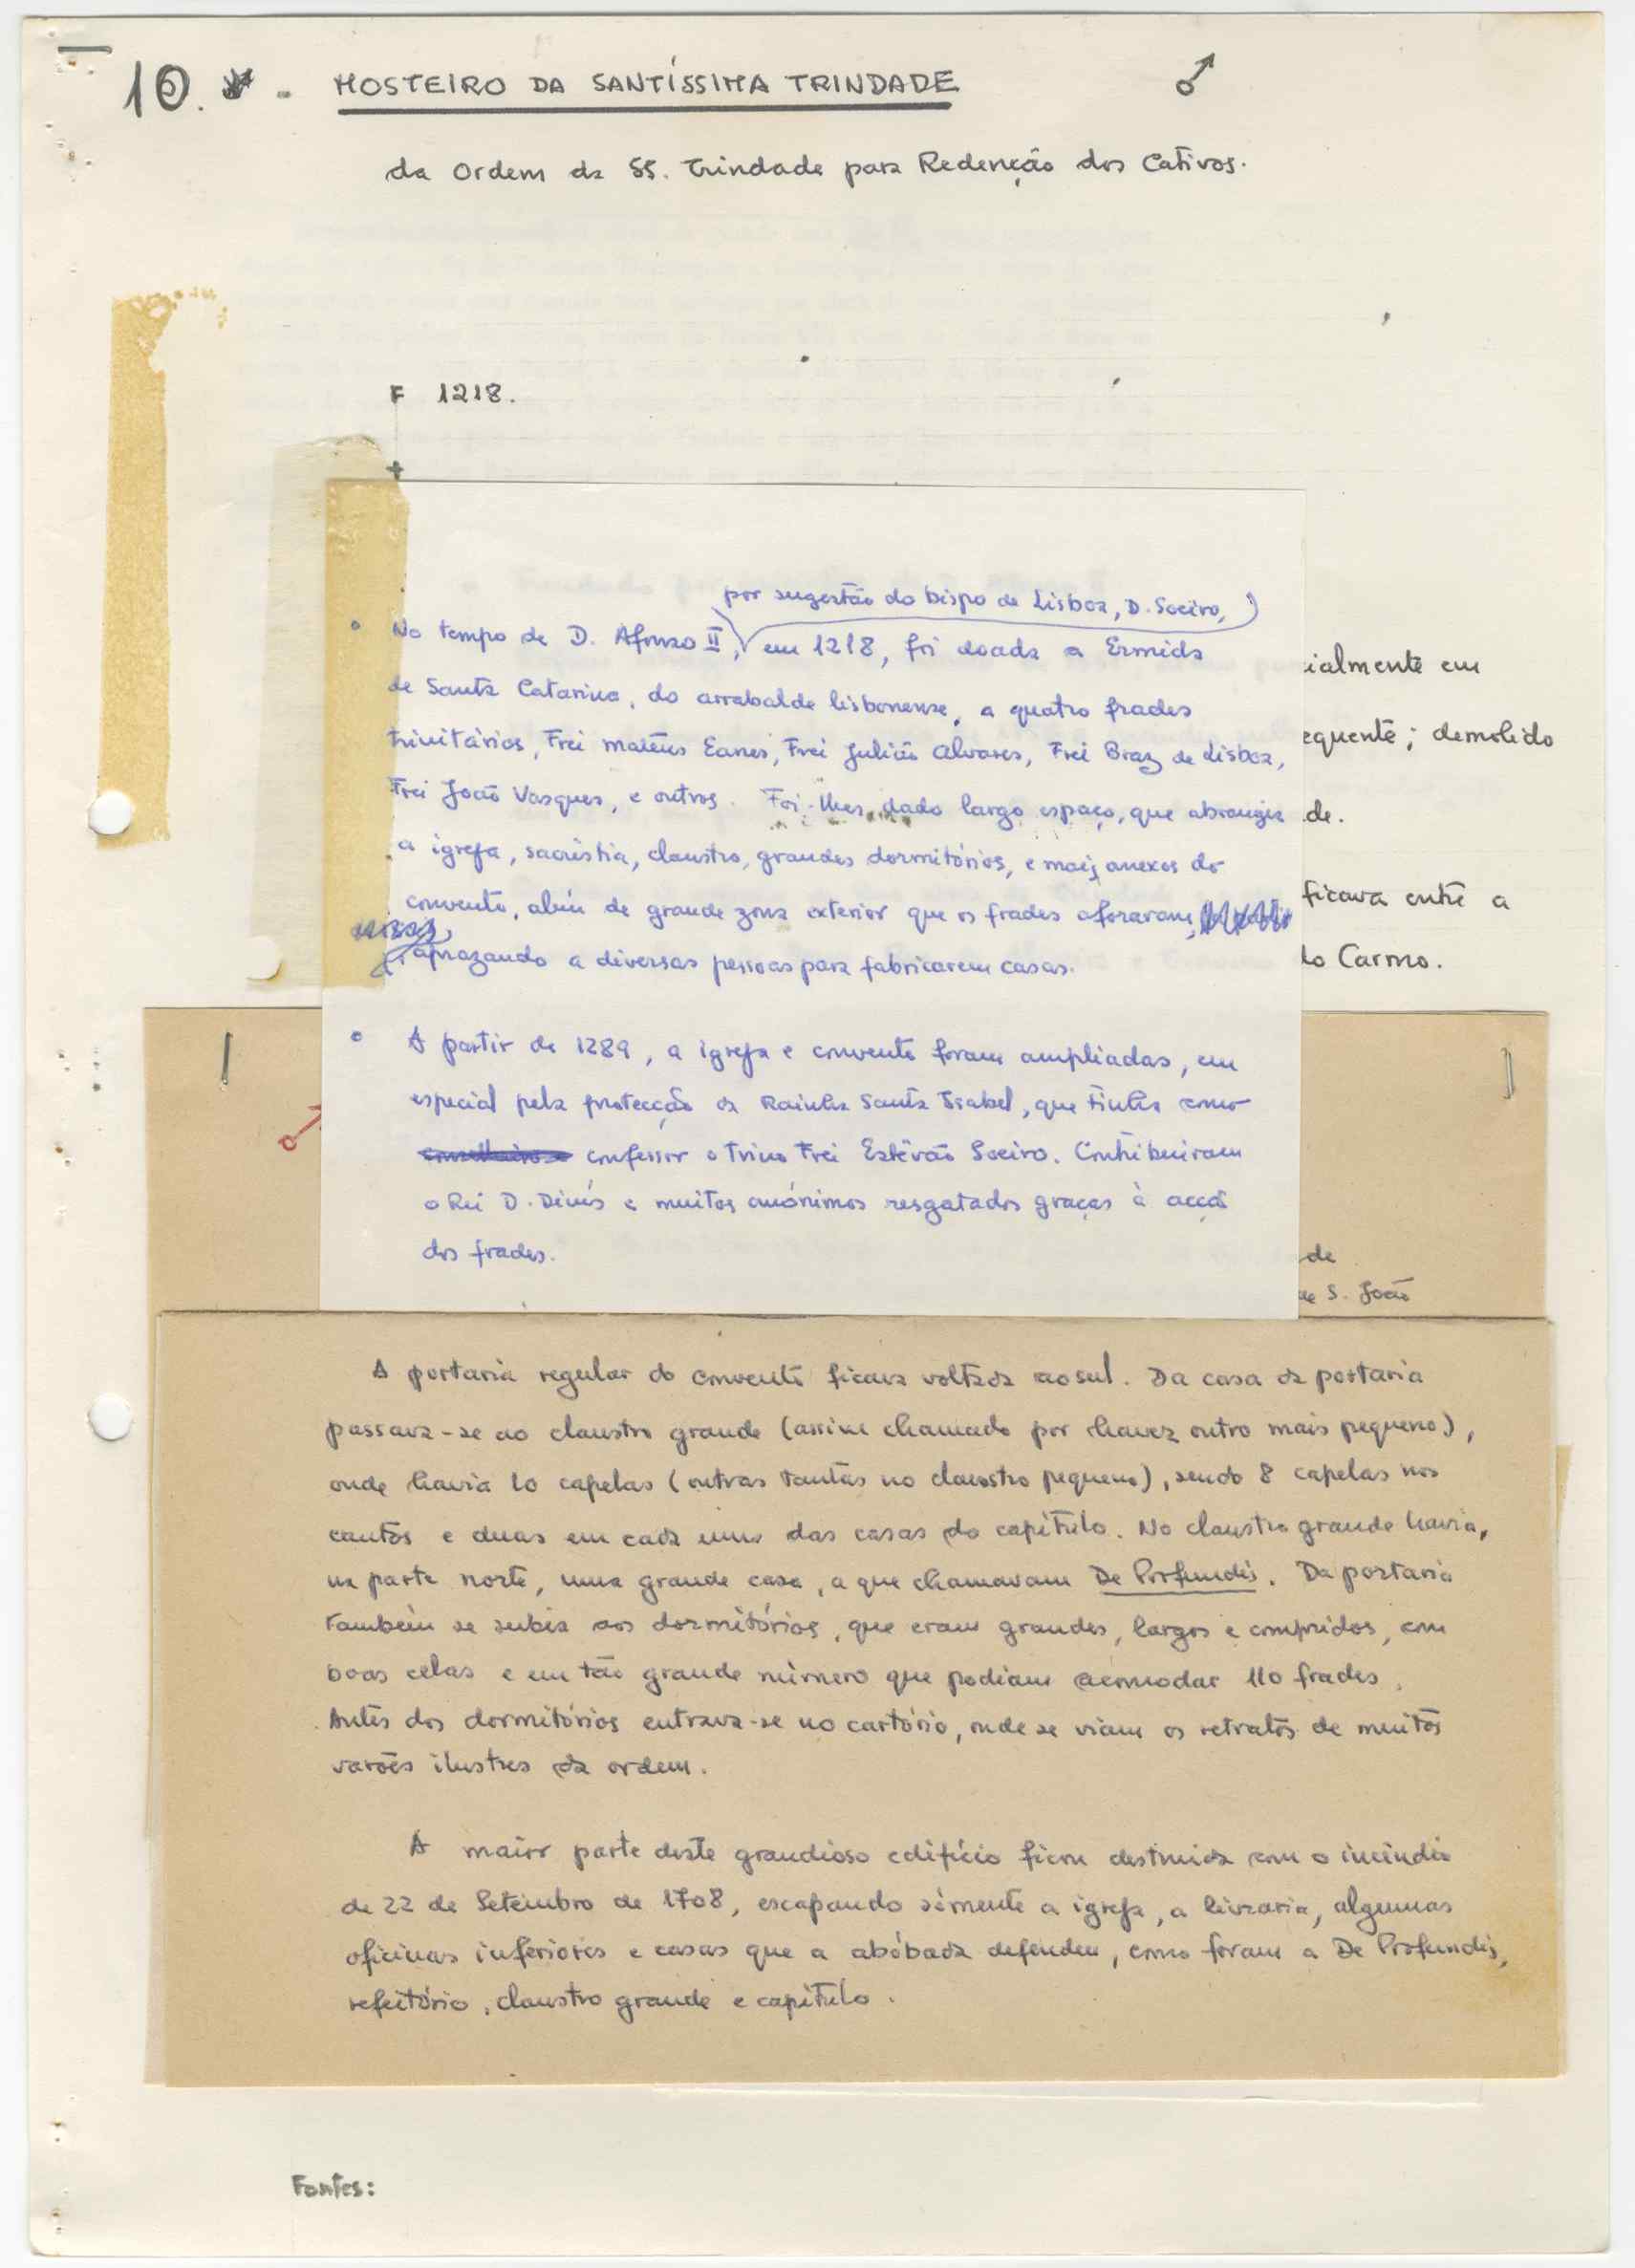 10. - MOSTEIRO DA SANTÍSSIMA TRINDADE ♂
da Ordem da SS. Trindade para Redenção dos Cativos.
F 1218.
+
por sugestão do bispo de Lisboa, D. Soeiro,
No tempo de D. Afonso II, em 1218, foi doada a Ermida
de Santa Catarina, do arrabalde lisbonense, a quatro frades
trinitários, Frei Mateus Eanes, Frei Julião Alvares, Frei Braz de Lisboa,
Frei João Vasques, e outros. Foi-lhes dado largo espaço, que abrangia
a igreja, sacristia, claustro, grandes dormitórios, e mais anexos do
convento, além de grande zona exterior que os frades aforaram,
aprazando a diversas pessoas para fabricarem casas.
A partir de 1289, a igreja e convento foram ampliadas, em
especial pela protecção da Rainha Santa Isabel, que tinha como
confessor o trino Frei Estêvão Soeiro. Contribuiram
o Rei D. Dinís e muitos anónimos resgatados graças à acção
dos frades.
ialmente em
equente; demolido
de.
ficava entre a
do Carmo.
de
de S. João
A portaria regular do convento ficava voltada ao sul. Da casa da portaria
passava-se ao claustro grande (assim chamado por haver outro mais pequeno),
onde havia 10 capelas (outras tantas no claustro pequeno), sendo 8 capelas nos
cantos e duas em cada uma das casas do capítulo. No claustro grande havia,
na parte norte, uma grande casa, a que chamavam De Profundis. Da portaria
também se subia aos dormitórios, que eram grandes, largos e compridos, com
boas celas e em tão grande número que podiam acomodar 110 frades.
Antes dos dormitórios entrava-se no cartório, onde se viam os retratos de muitos
varões ilustres da ordem.
A maior parte deste grandioso edifício ficou destruida com o incêndio
de 22 de Setembro de 1708, escapando sòmente a igreja, a livraria, algumas
oficinas inferiores e casas que a abóbada defendeu, como foram a De Profundis,
refeitório, claustro grande e capítulo.
Fontes: